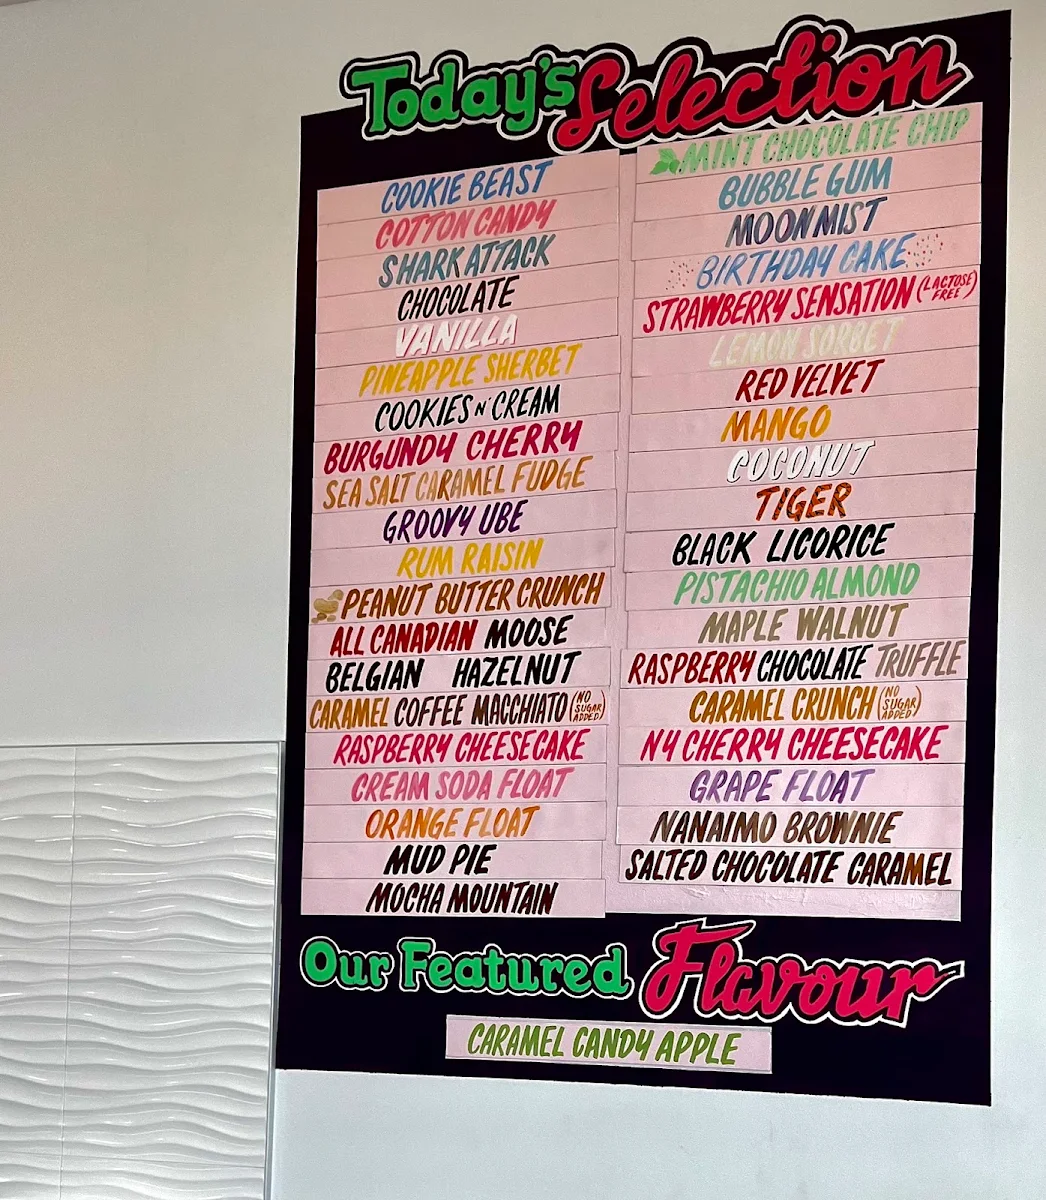 Today's Selection
COOKIE BEAST
COTTON CANDY
SHARK ATTACK
CHOCOLATE
VANILLA
PINEAPPLE SHERBET
COOKIES N' CREAM
BURGUNDY CHERRY
SEA SALT CARAMEL FUDGE
GROOVY UBE
RUM RAISIN
PEANUT BUTTER CRUNCH
ALL CANADIAN MOOSE
BELGIAN HAZELNUT
CARAMEL COFFEE MACCHIATO (NO SUGAR ADDED)
RASPBERRY CHEESECAKE
CREAM SODA FLOAT
ORANGE FLOAT
MUD PIE
MOCHA MOUNTAIN
MINT CHOCOLATE CHIP
BUBBLE GUM
MOON MIST
BIRTHDAY CAKE
STRAWBERRY SENSATION (LACTOSE FREE)
LEMON SORBET
RED VELVET
MANGO
COCONUT
TIGER
BLACK LICORICE
PISTACHIO ALMOND
MAPLE WALNUT
RASPBERRY CHOCOLATE TRUFFLE
CARAMEL CRUNCH (NO SUGAR ADDED)
NY CHERRY CHEESECAKE
GRAPE FLOAT
NANAIMO BROWNIE
SALTED CHOCOLATE CARAMEL
Our Featured Flavour
CARAMEL CANDY APPLE